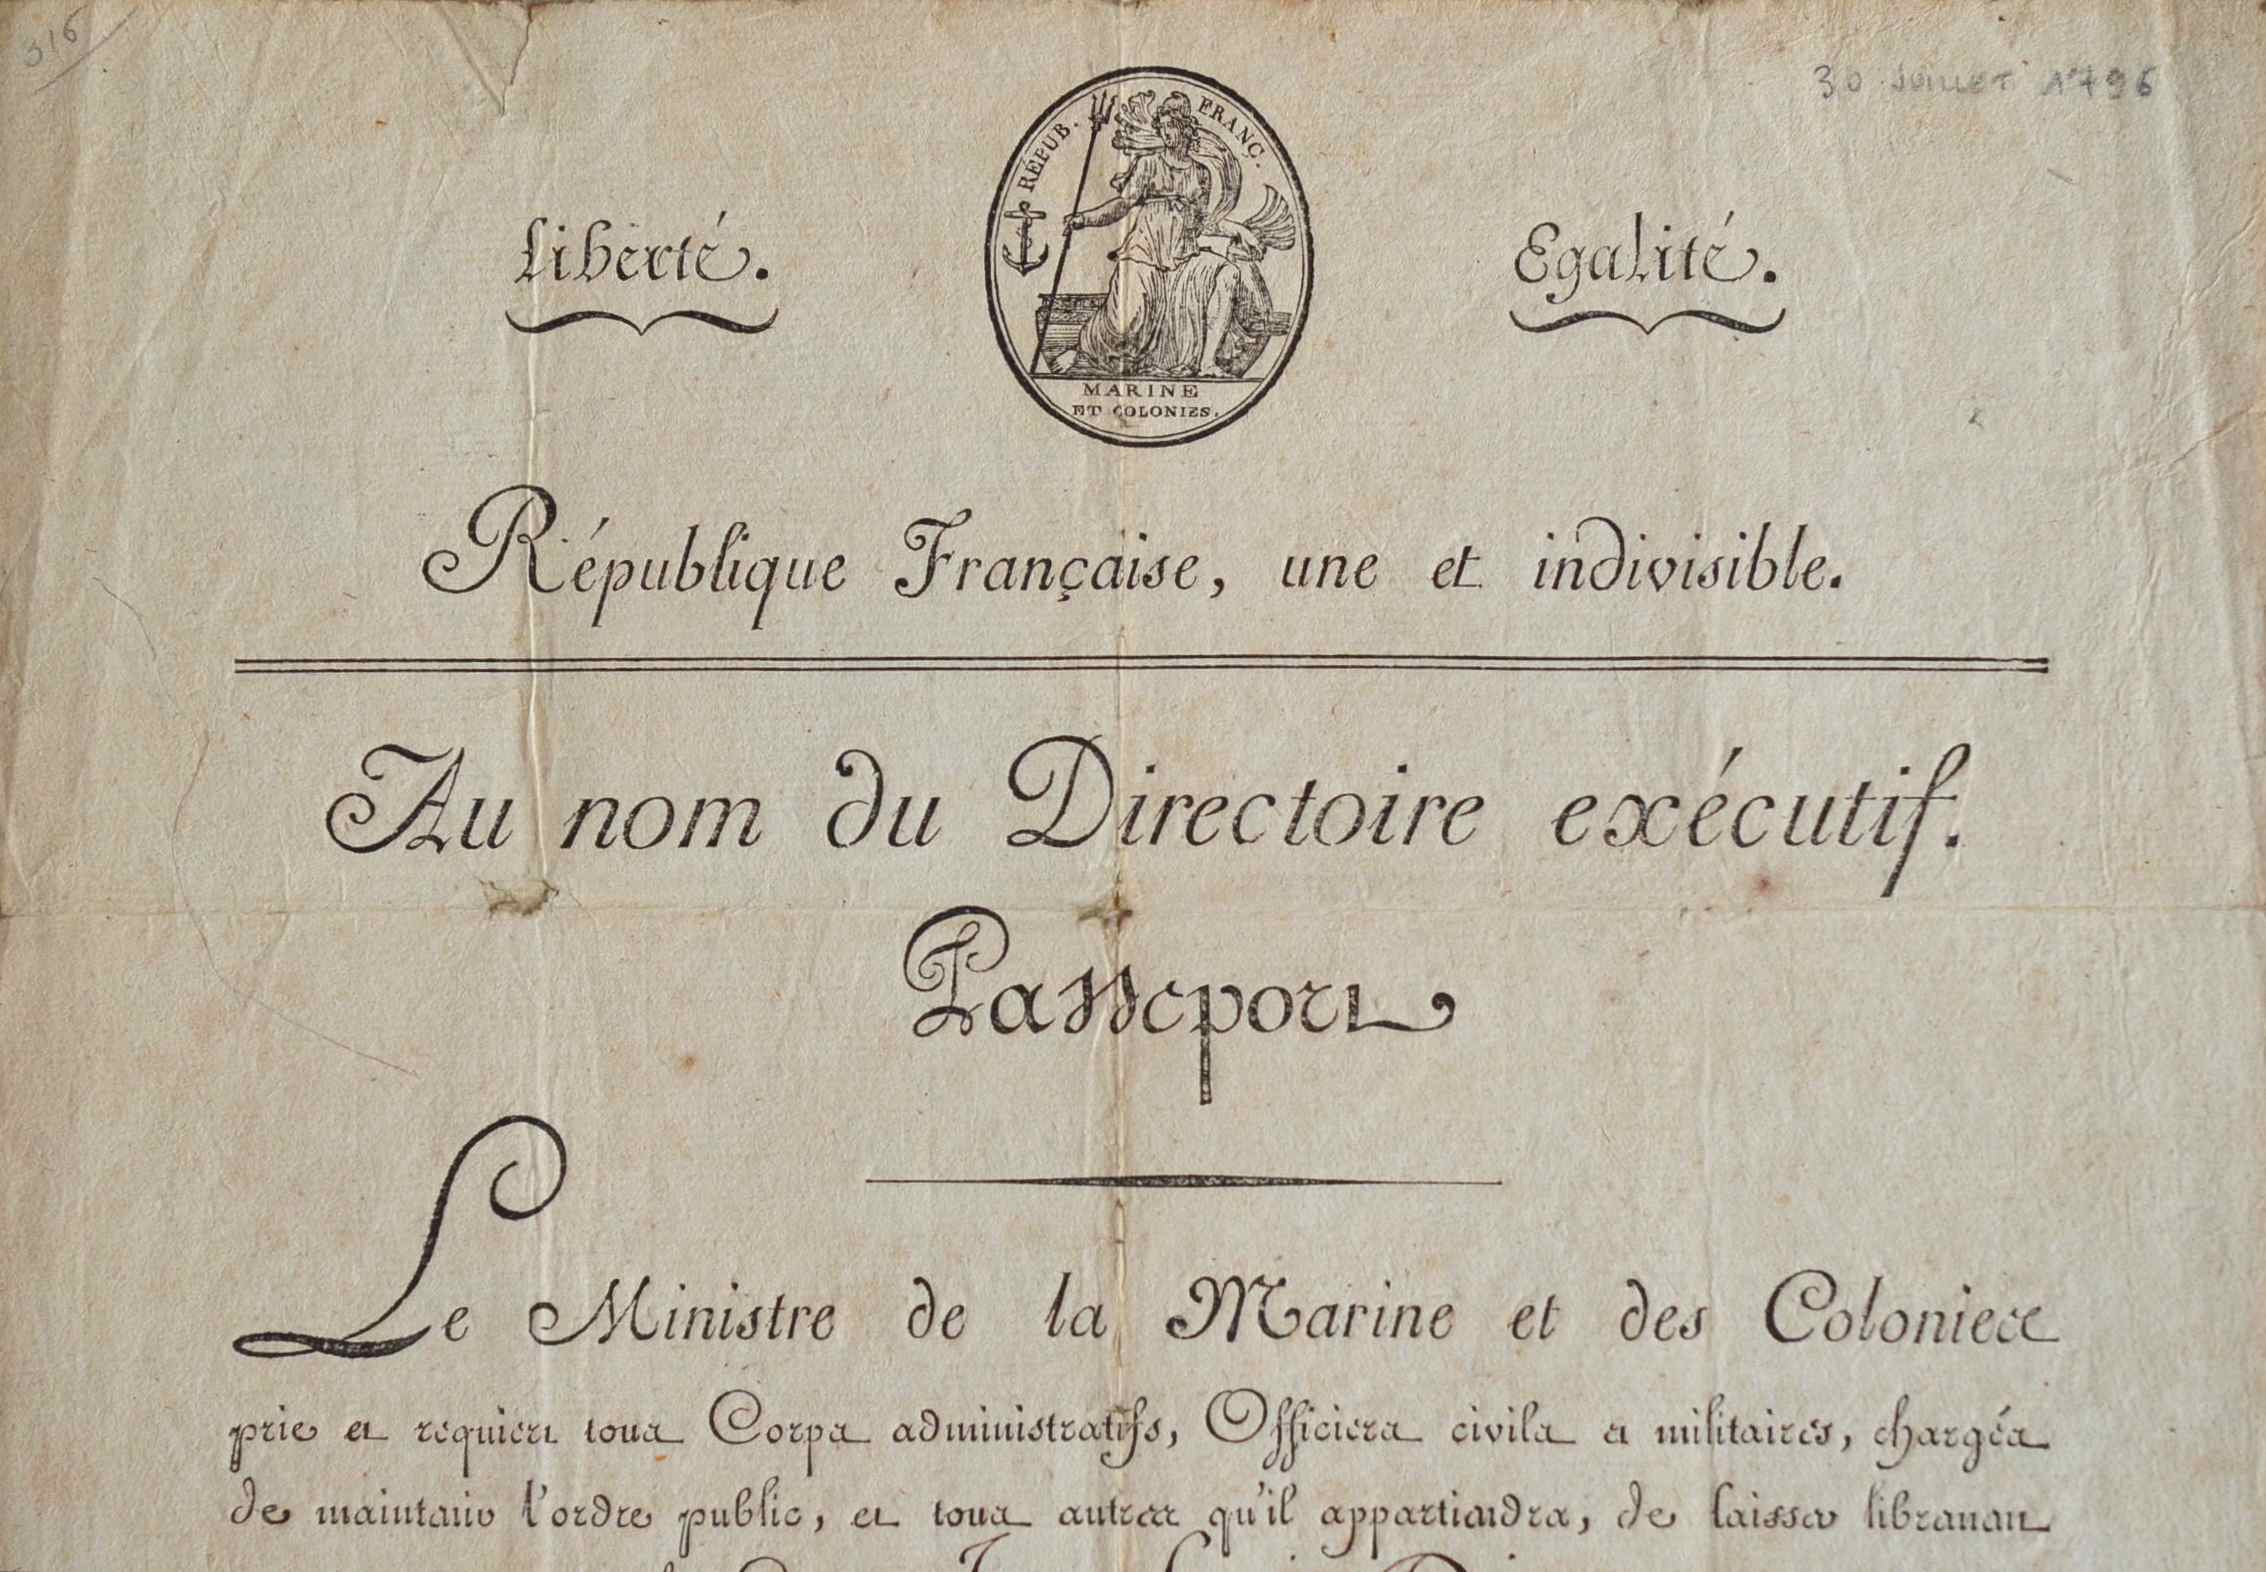 316
30 JUILLET 1796
RÉPUB. FRANÇ.
Liberté. Egalité.
MARINE
ET COLONIES.
République Française, une et indivisible.
Au nom du Directoire exécutif.
Passeport
Le Ministre de la Marine et des Colonies
prie et requiert tous Corps administratifs, Officiers civils et militaires, chargés
de maintenir l'ordre public, et tous autres qu'il appartiendra, de laisser librement